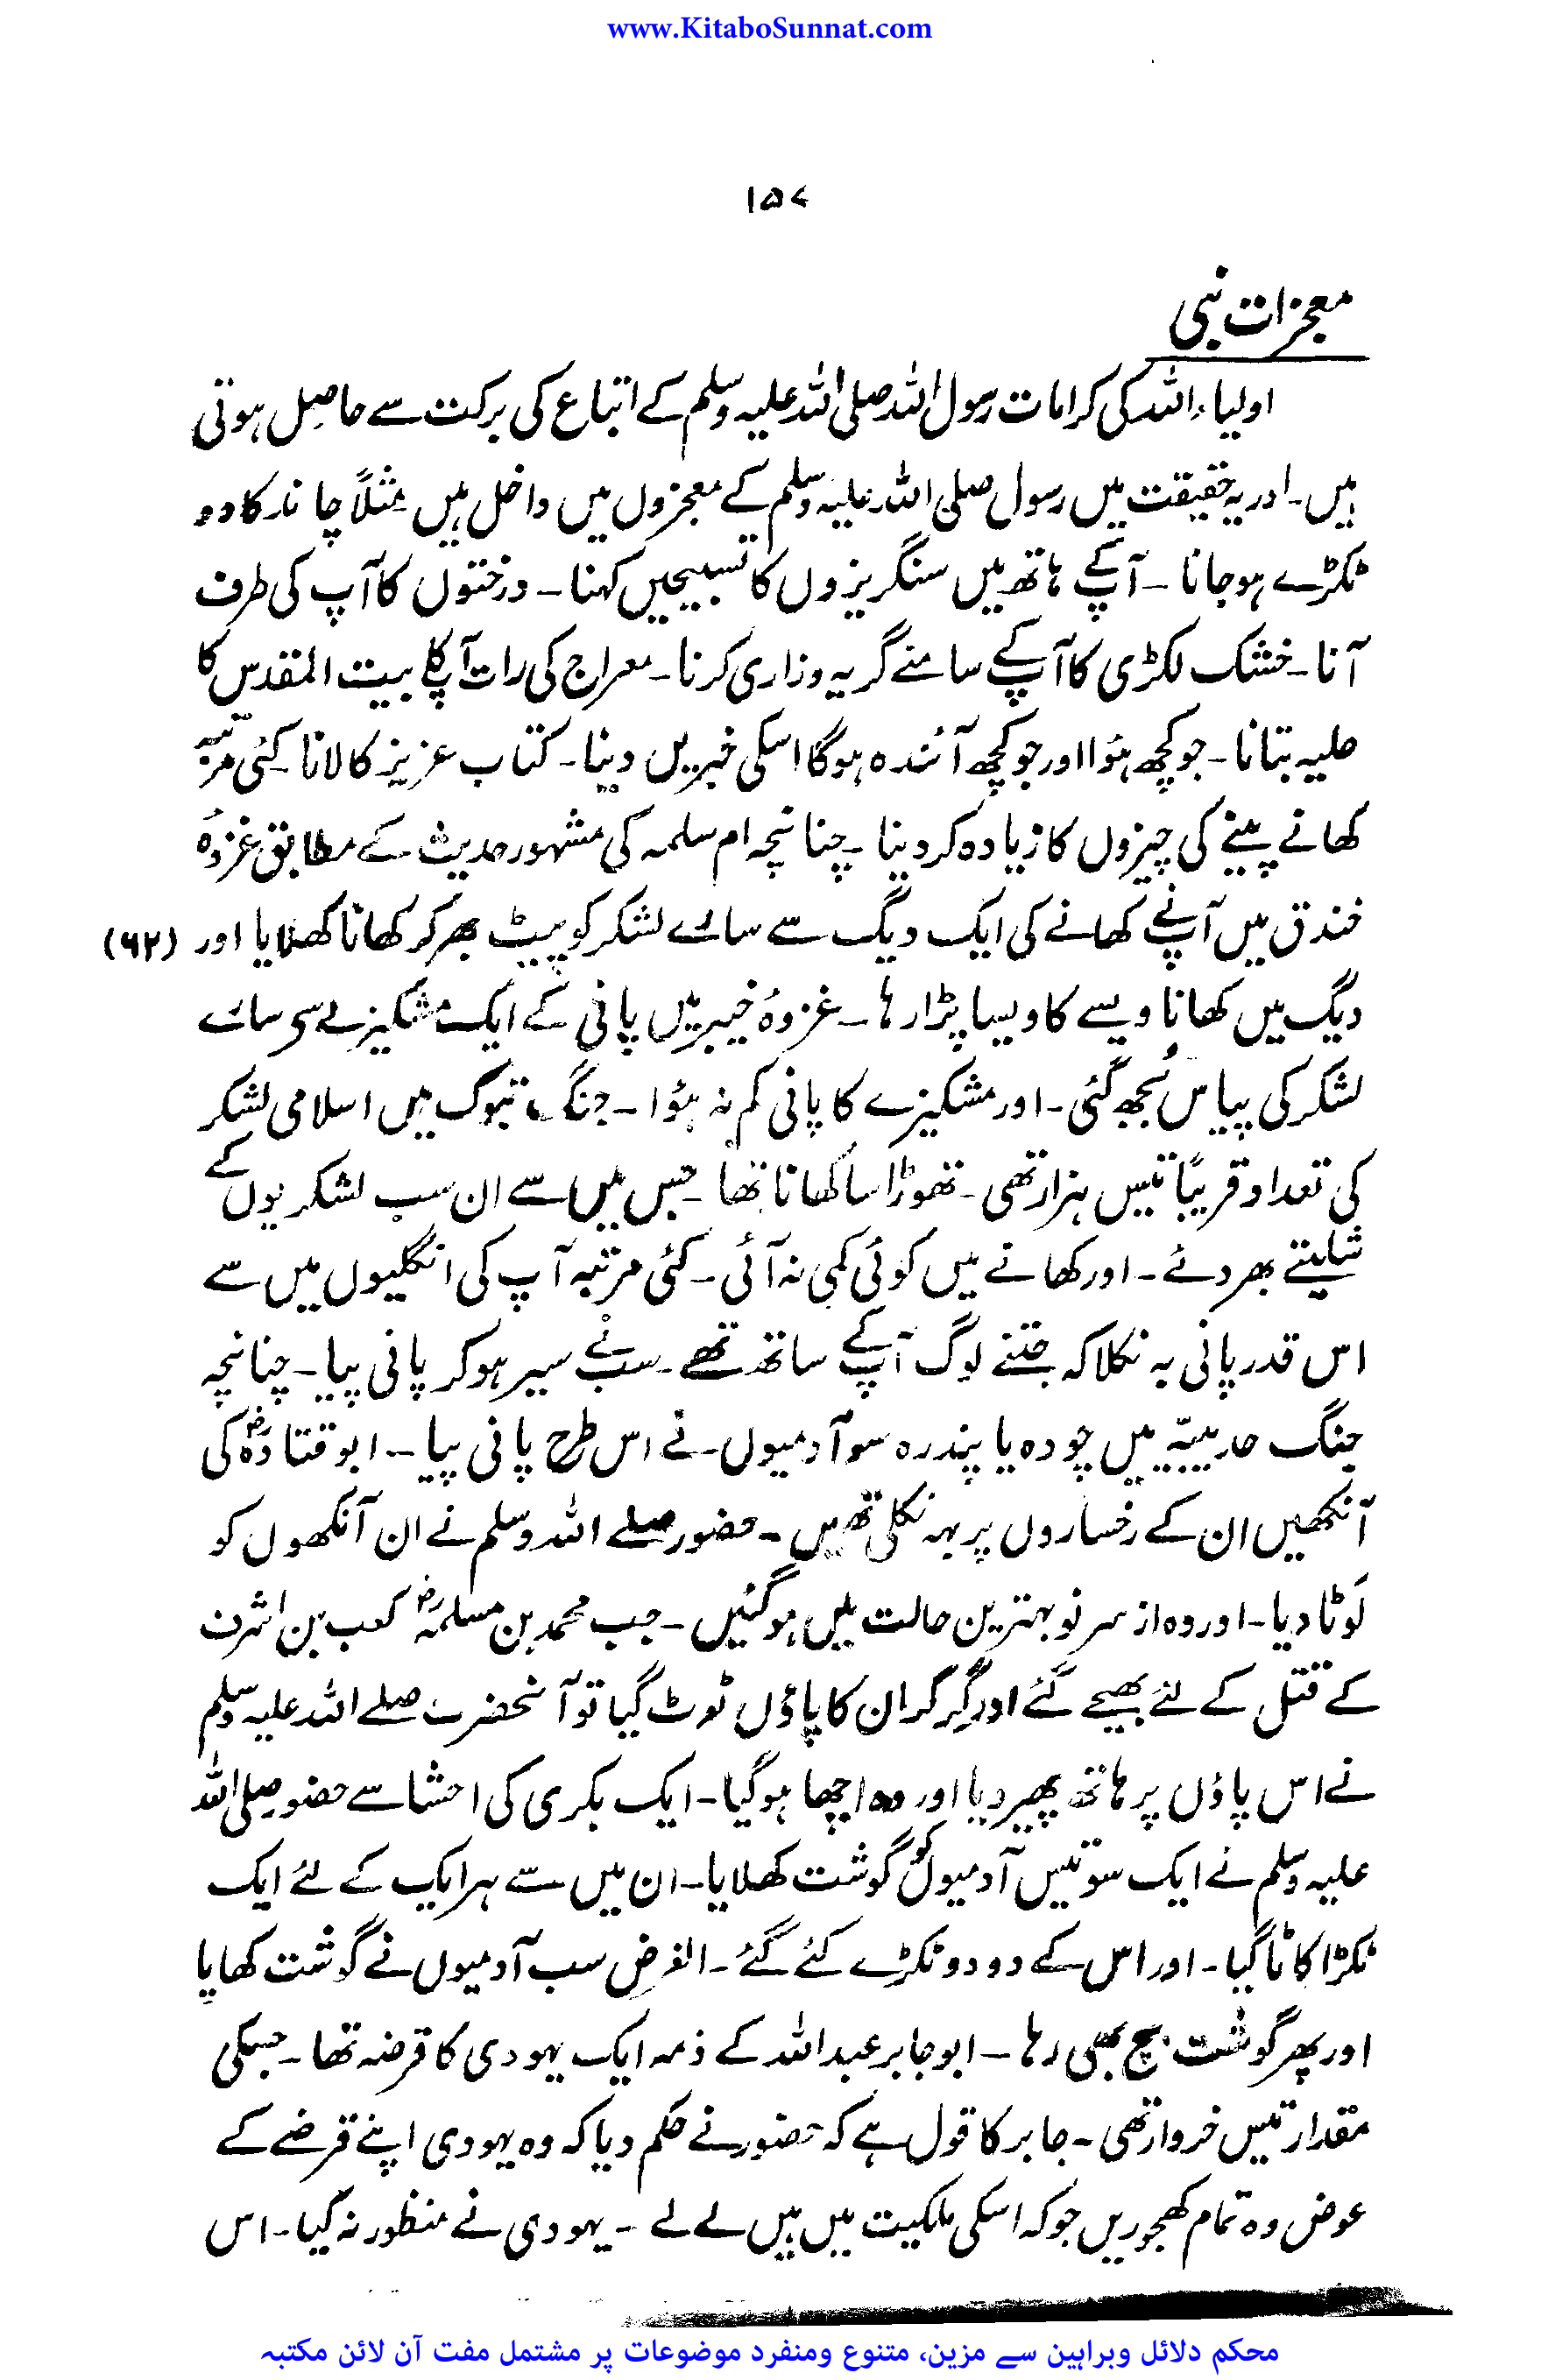 www.KitaboSunnat.com
۱۵۷
معجزات نبی
اولیاء اللہ کی کرامات رسول اللہ صلی اللہ علیہ وسلم کے اتباع کی برکت سے حاصل ہوتی
ہیں۔ اور یہ حقیقت میں رسول صلی اللہ علیہ وسلم کے معجزوں میں داخل ہیں مثلاً چاند کا دو
ٹکڑے ہوجانا ۔ آپکے ہاتھ میں سنگریزوں کا تسبیحیں کہنا ۔ درختوں کا آپ کی طرف
آنا ۔ خشک لکڑی کا آپکے سامنے گریہ وزاری کرنا ۔ معراج کی رات آپکا بیت المقدس کا
حلیہ بتانا ۔ جو کچھ ہؤا اور جو کچھ آئندہ ہوگا اسکی خبریں دینا ۔ کتاب عزیز کا لانا ۔ کئی مرتبہ
کھانے پینے کی چیزوں کا زیادہ کردینا ۔ چنانچہ ام سلمہ کی مشہور حدیث کے مطابق غزوۂ
خندق میں آپنے کھانے کی ایک دیگ سے سارے لشکر کو پیٹ بھر کر کھانا کھلایا اور (۶۲)
دیگ میں کھانا ویسے کا ویسا پڑا رہا ۔ غزوۂ خیبر میں پانی کے ایک مشکیزے سے سارے
لشکر کی پیاس بُجھ گئی ۔ اور مشکیزے کا پانی کم نہ ہؤا ۔ جنگ تبوک میں اسلامی لشکر
کی تعداد قریباً تیس ہزار تھی ۔ تھوڑا سا کھانا تھا ۔ جس میں سے ان سب لشکریوں کے
شلیتے بھر دئے ۔ اور کھانے میں کوئی کمی نہ آئی ۔ کئی مرتبہ آپ کی انگلیوں میں سے
اس قدر پانی بہ نکلا کہ جتنے لوگ آپکے ساتھ تھے ۔ سبنے سیر ہوکر پانی پیا ۔ چنانچہ
جنگ حدیبیّہ میں چودہ یا پندرہ سو آدمیوں نے اس طرح پانی پیا ۔ ابو قتادہؓ کی
آنکھیں ان کے رخساروں پر بہہ نکلی تھیں ۔ حضور صلے اللہ وسلم نے ان آنکھوں کو
لَوٹا دیا ۔ اور وہ از سر نو بہترین حالت میں ہوگئیں ۔ جب محمد بن مسلمہؓ کعب بن اشرف
کے قتل کے لئے بھیجے گئے اور گِر کر ان کا پاؤں ٹوٹ گیا تو آنحضرت صلے اللہ علیہ وسلم
نے اس پاؤں پر ہاتھ پھیر دیا اور وہ اچھا ہوگیا ۔ ایک بکری کی احشا سے حضور صلی اللہ
علیہ وسلم نے ایک سو تیس آدمیوں کو گوشت کھلایا ۔ ان میں سے ہر ایک کے لئے ایک
ٹکڑا کاٹا گیا ۔ اور اس کے دو دو ٹکڑے کئے گئے ۔ الغرض سب آدمیوں نے گوشت کھایا
اور پھر گوشت بچ بھی رہا ۔ ابو جابر عبداللہ کے ذمہ ایک یہودی کا قرضہ تھا ۔ جسکی
مقدار تیس خروار تھی ۔ جابر کا قول ہے کہ حضور نے حکم دیا کہ وہ یہودی اپنے قرضے کے
عوض وہ تمام کھجوریں جو کہ اسکی ملکیت میں ہیں لے لے ۔ یہودی نے منظور نہ کیا ۔ اس
محکم دلائل وبراہین سے مزین، متنوع ومنفرد موضوعات پر مشتمل مفت آن لائن مکتبہ